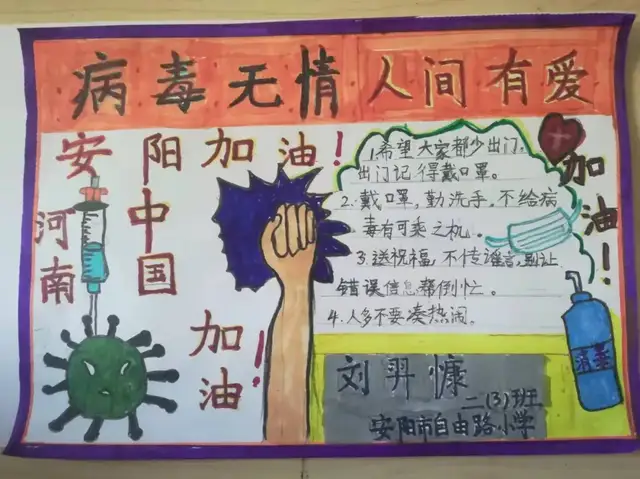 病毒无情 人间有爱
安阳加油!
河南
中国
加油!
1.希望大家都少出门。
出门记得戴口罩。
2.戴口罩,勤洗手,不给病
毒有可乘之机。
3.送祝福,不传谣言,别让
错误信息帮倒忙。
4.人多不要凑热闹。
加油!
消毒
刘羿慷
二(3)班
安阳市自由路小学